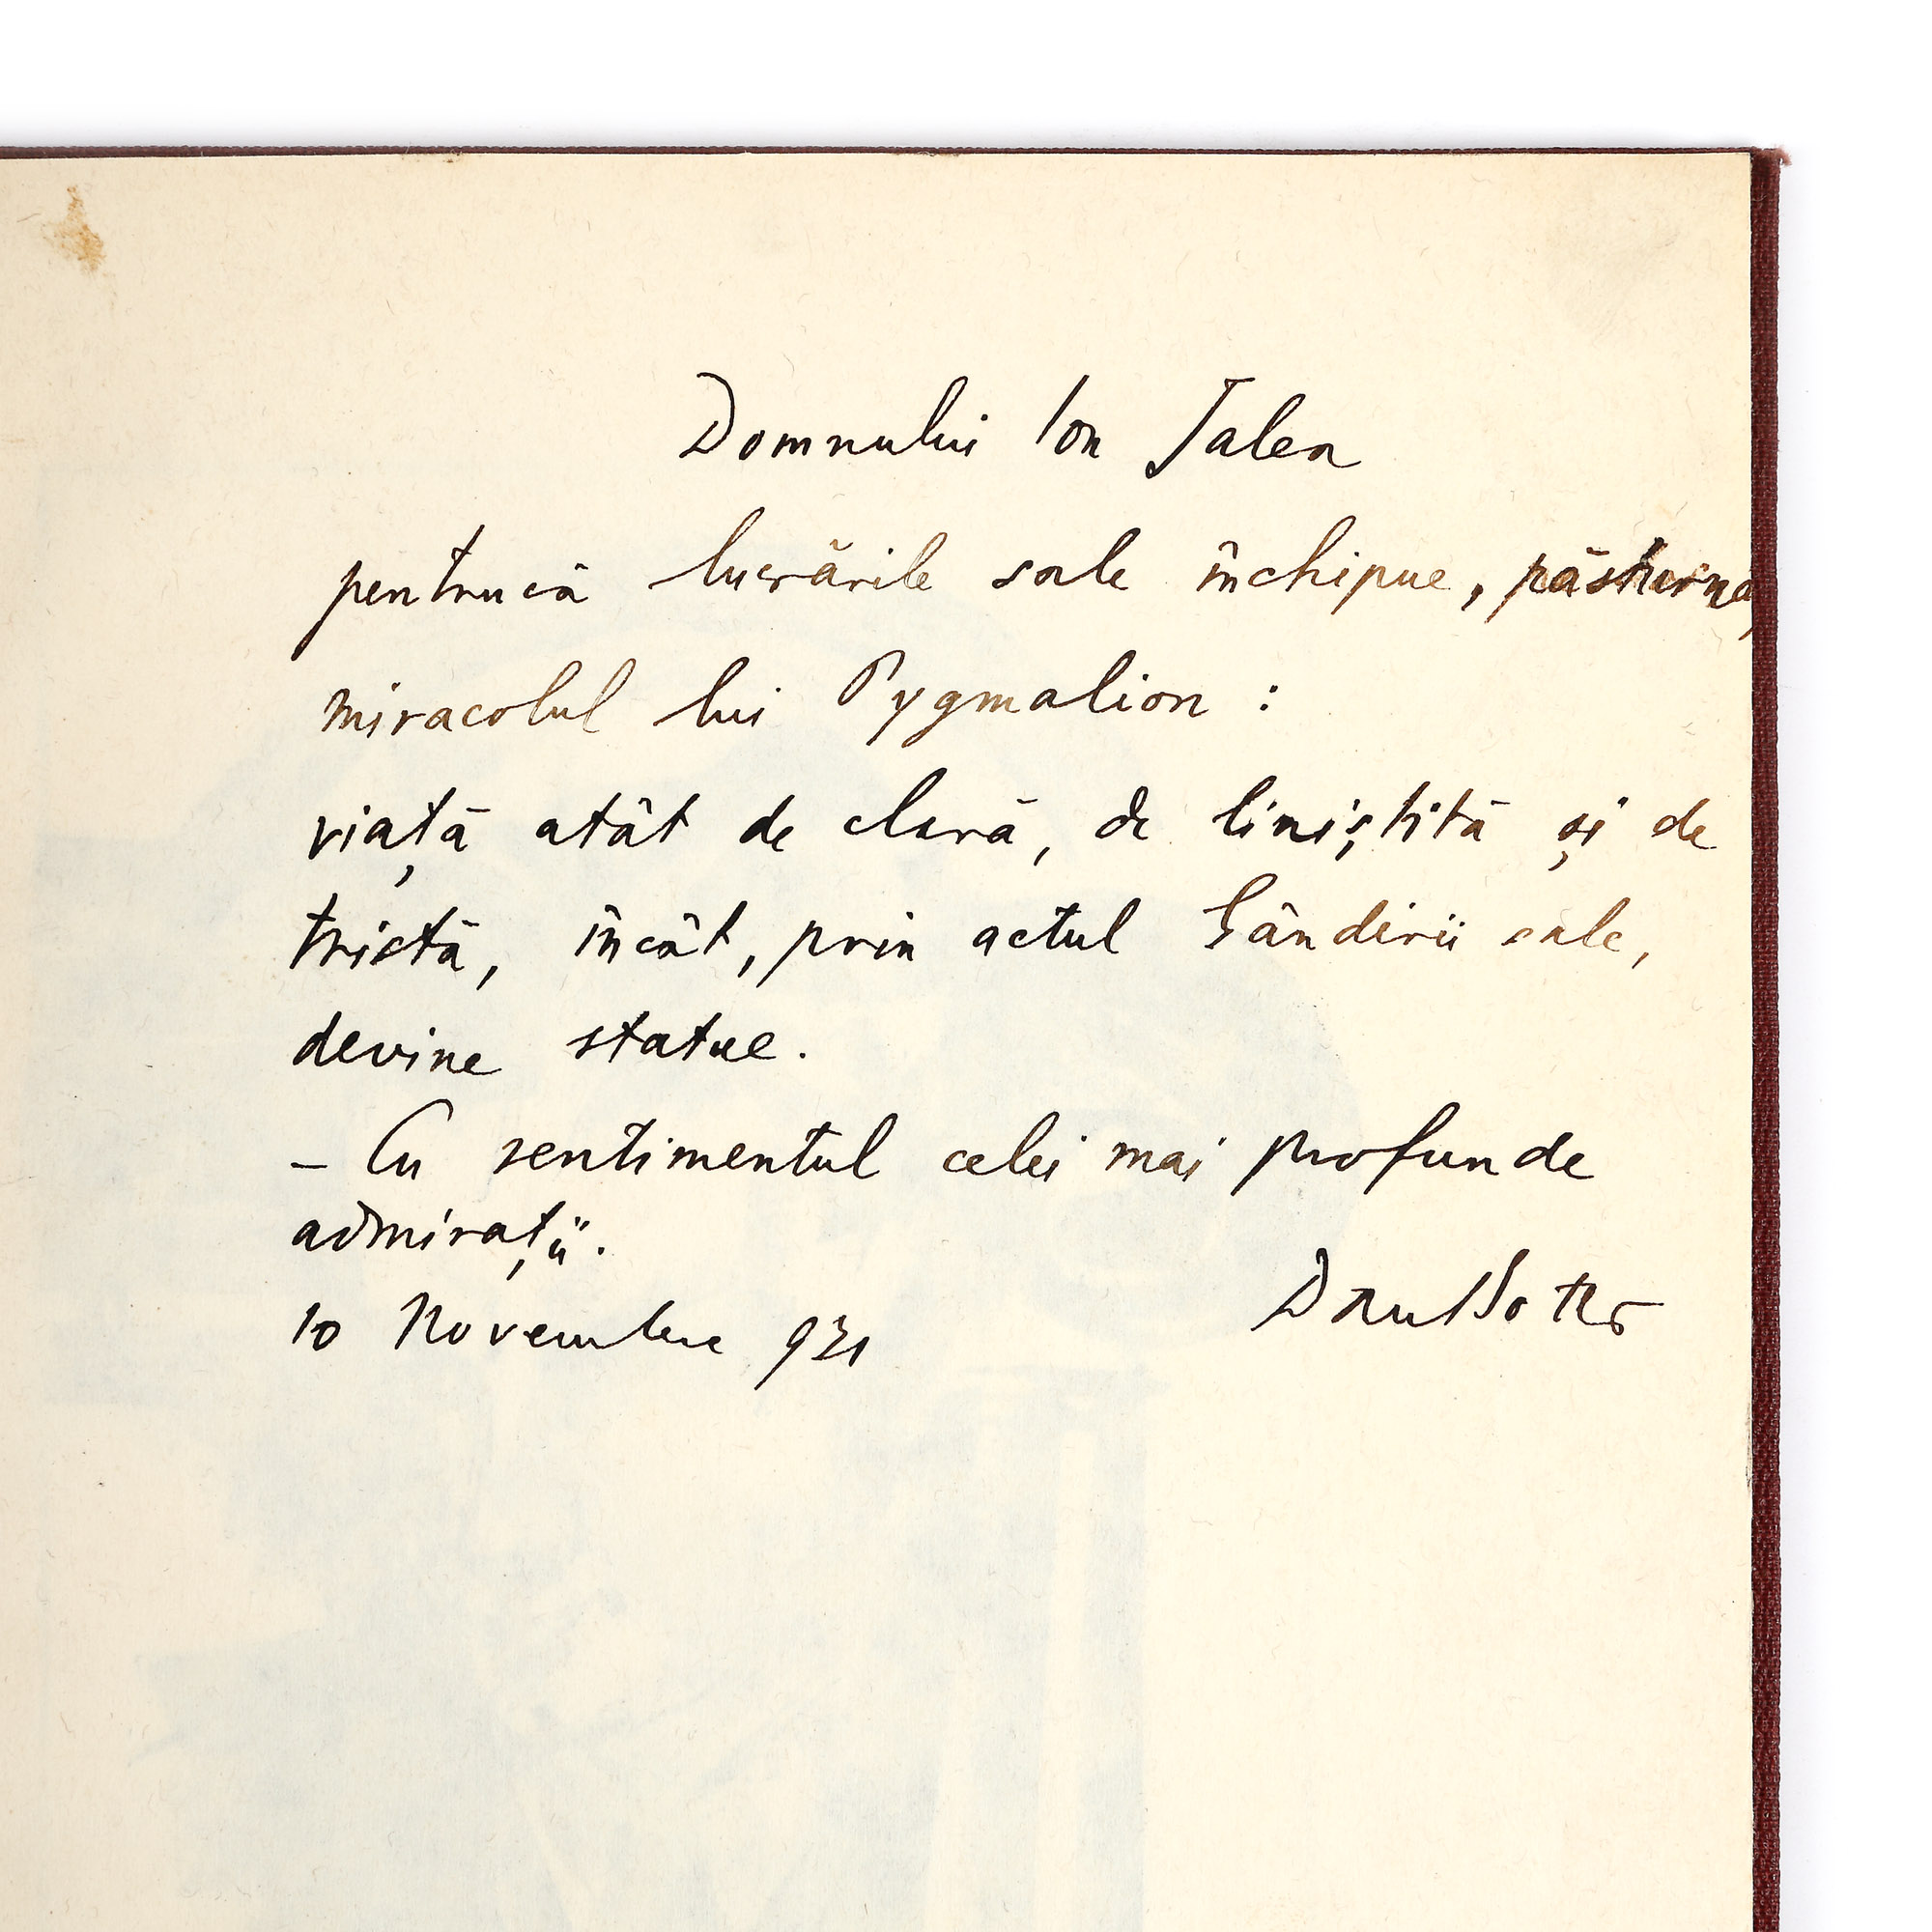 Domnului Ion Jalea
pentrucă lucrările sale închipue, răsturnat,
miracolul lui Pygmalion :
viață atât de clară, de liniștită și de
tristă, încât, prin actul gândirii sale,
devine statue.
– Cu sentimentul celei mai profunde
admirații.
Dan Botta
10 Novembre 931